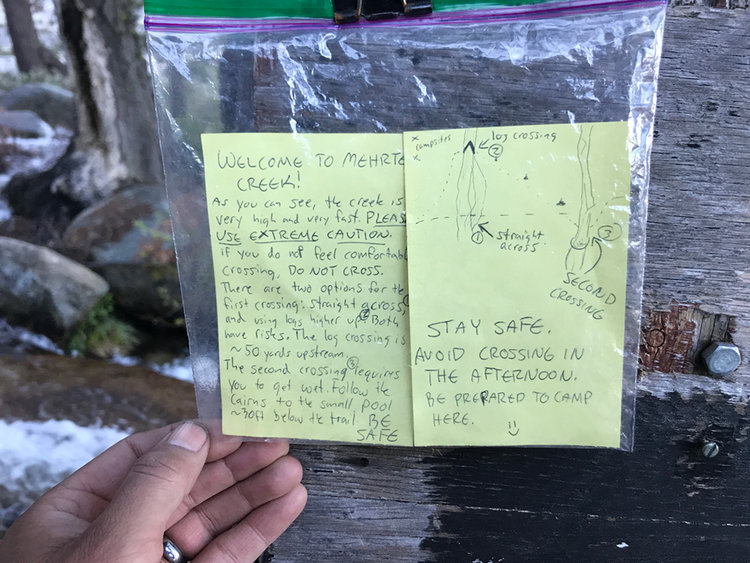 WELCOME TO MEHRTE
CREEK!
As you can see, the creek is
very high and very fast. PLEAS
USE EXTREME CAUTION.
if you do not feel comfortabl
crossing, DO NOT CROSS.
There are two options for th
first crossing: straight across, 1
and using logs higher up. 2 Both
have risks. The log crossing is
~50 yards upstream.
The second crossing 3 requires
you to get wet. Follow the
Cairns to the small pool
~30ft below the trail. BE
SAFE
x campsites
x
log crossing
2
1
straight
across
3
SECOND
CROSSING
STAY SAFE.
AVOID CROSSING IN
THE AFTERNOON.
BE PREPARED TO CAMP
HERE.